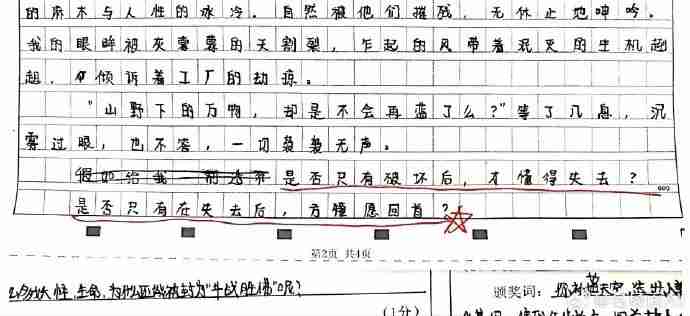 的麻木与人性的冰冷。自然被他们摧残，无休止地呻吟。
我的眼眸被灰霾霾的天割裂，乍起的风带着泯灭的生机趔
趄，倾诉着工厂的劫掠。
“山野下的万物，却是不会再蓝了么？”等了几息，沉
雾过眼，也不答，一切袅袅无声。
假如给我一制 是否只有破坏后，才懂得失去？
600
是否只有在失去后，方憧愿回首？
第2页 共4页
为什么还能被封为“斗战胜佛”呢？
(1分)
颁奖词：